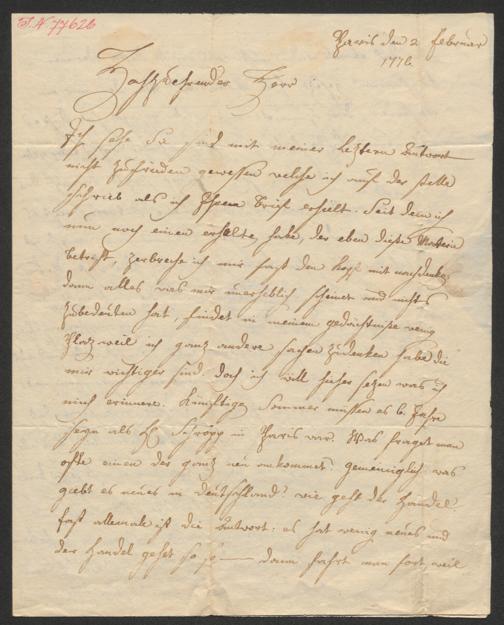 I. N 77626
Paris den 2 februar
1776
Hochzuehrender Herr
Ich sehe Sie sind mit meiner letztern Antwort
nicht zufrieden gewesen welche ich auf der stelle
schrieb als ich Ihren brief erhielt. Seit dem ich
nun noch einen erhalte habe, der eben diese Materie
betrift, zerbreche ich mir fast den Kopf mit nachdenken
dann alles was mir unerheblich scheinet und nichts
zubedeuten hat, findet in meinem gedächtnisse wenig
Platz weil ich ganz andere sachen zudenken habe die
mir wichtiger sind. doch ich will hieher setzen was ich
mich erinnere. Künftigen Sommer müssen es 6 Jahre
seyn als H. Schropp in Paris war. Was fraget man
ofte einen der ganz neu ankommet? gemeiniglich was
giebt es neues in deutschland? wie geht der Handel?
fast allemale ist die Antwort: es hat wenig neues und
der Handel gehet so so — dann fährt man fort, weil